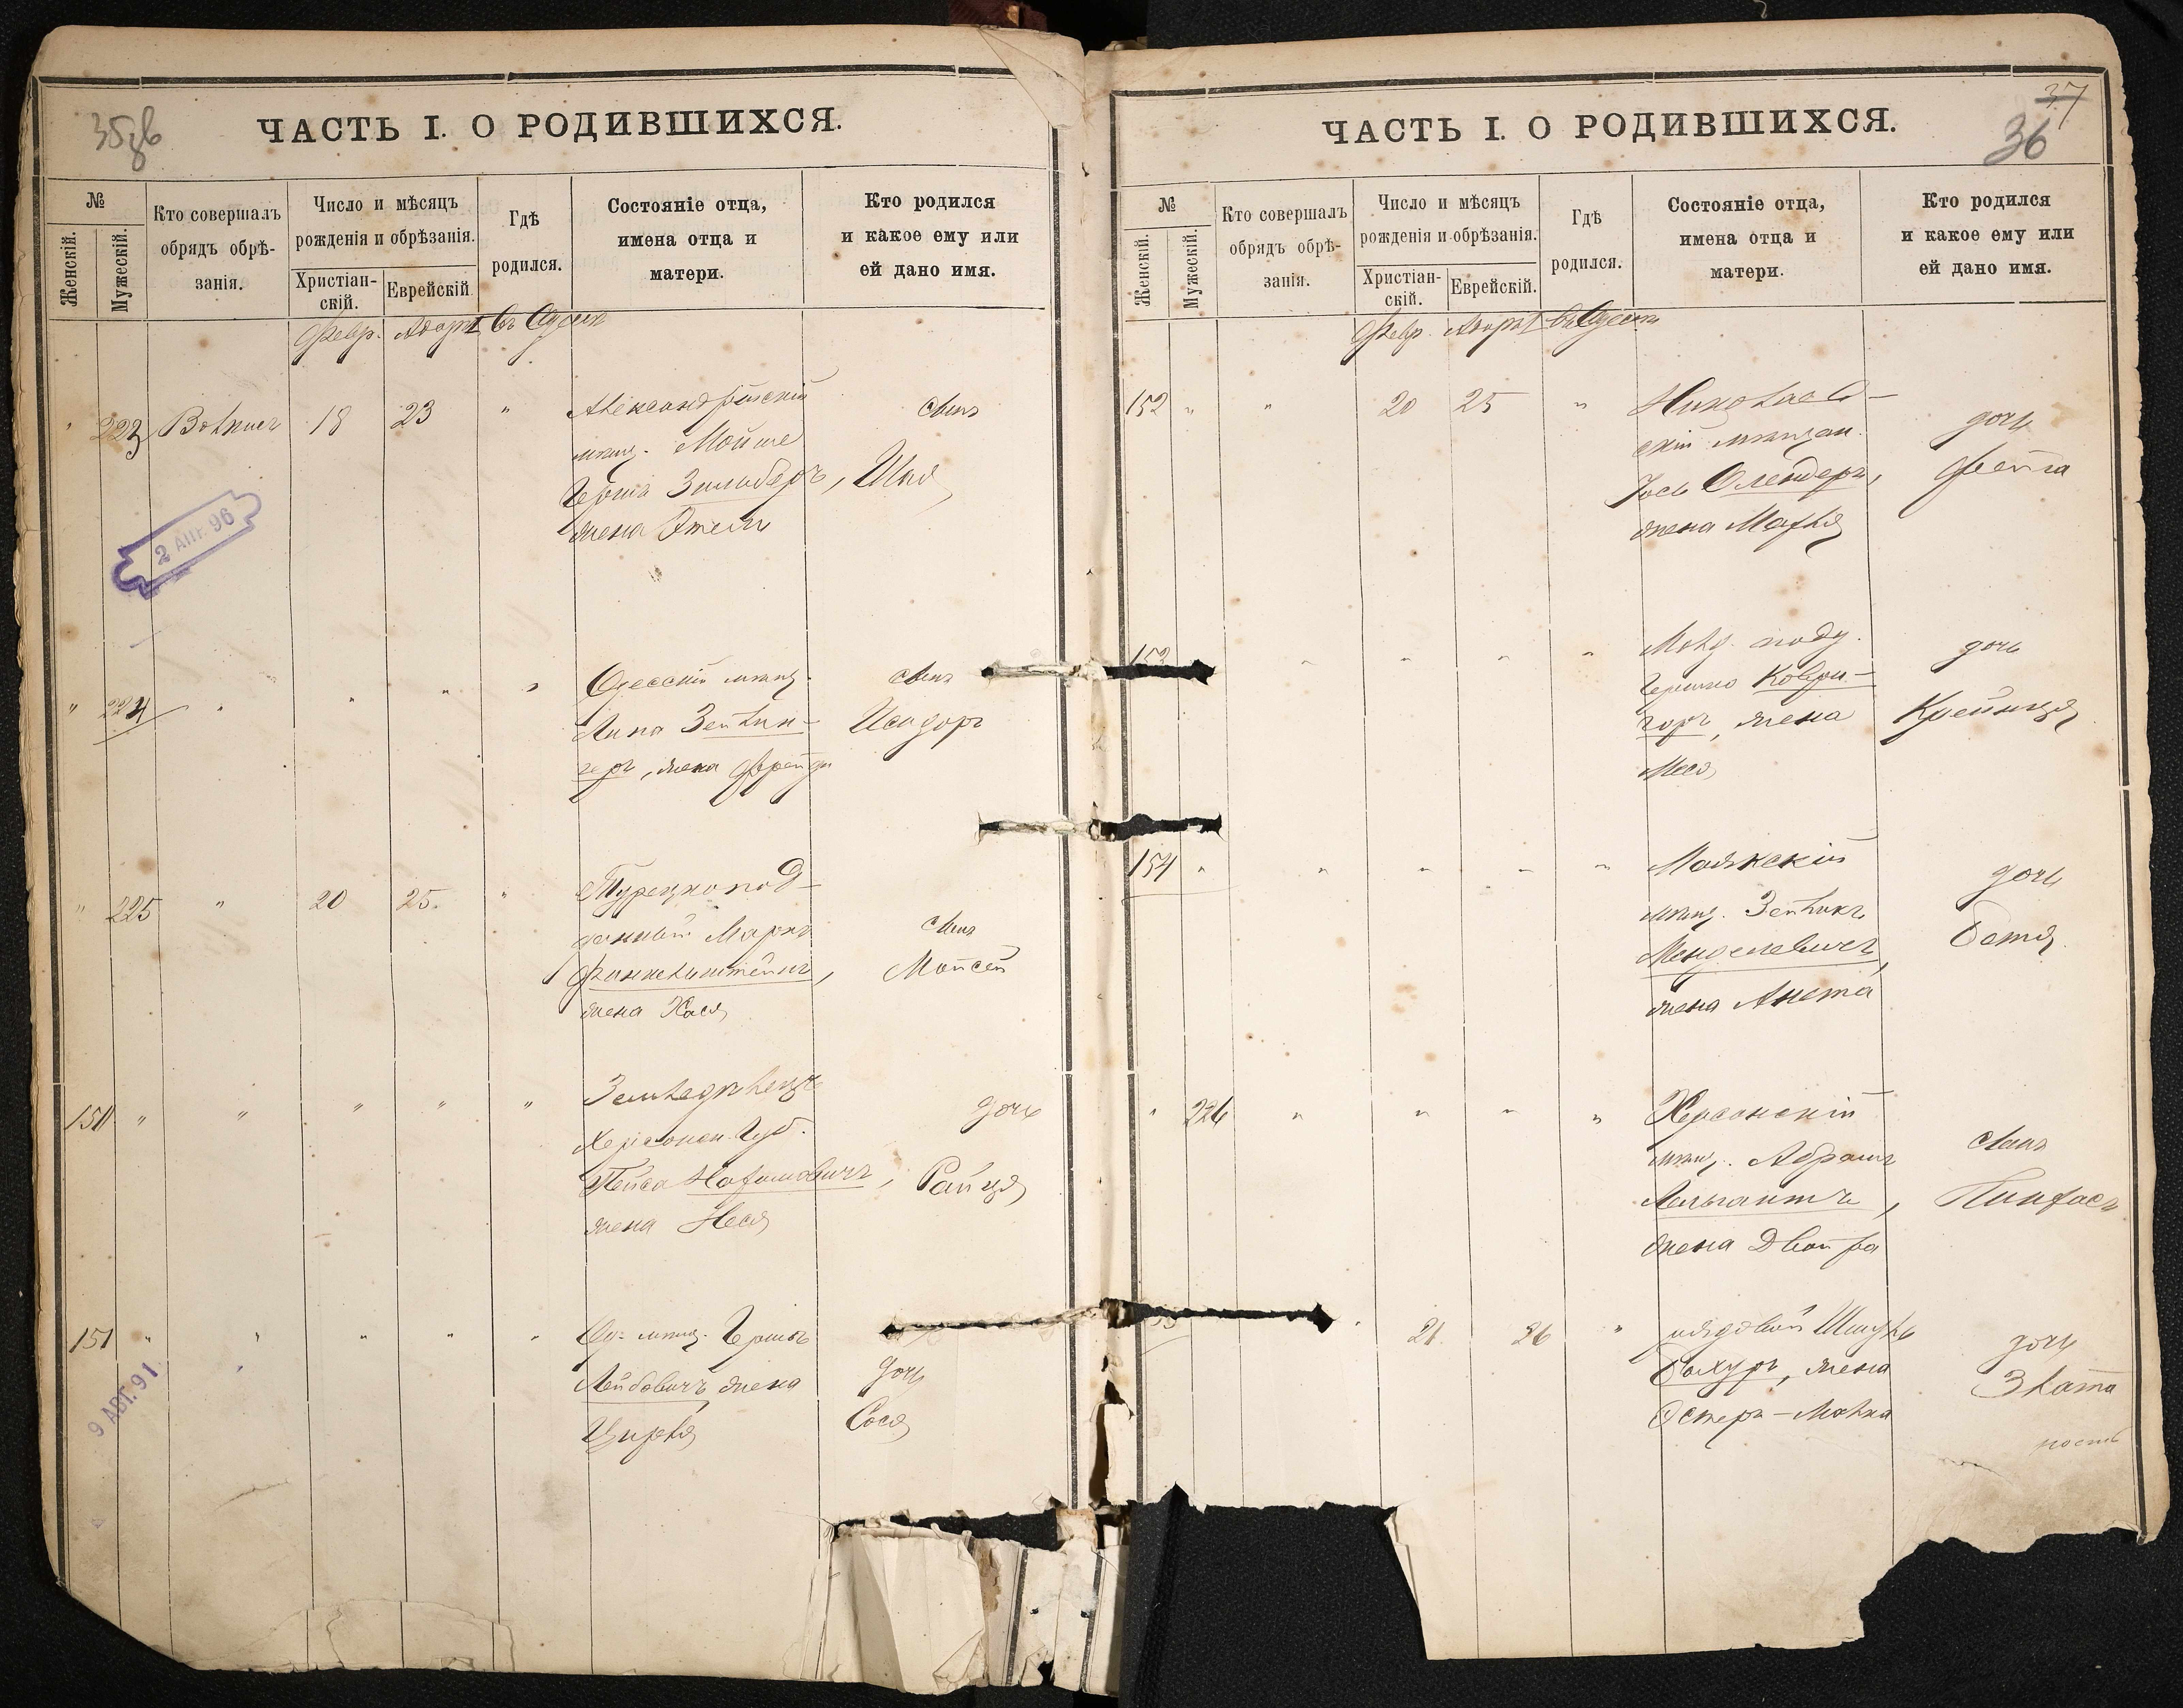 35 об
ЧАСТЬ I. О РОДИВШИХСЯ.
№
Женскій.
Мужескій.
Кто совершалъ
обрядъ обрѣ-
занія.
Число и мѣсяцъ
рожденія и обрѣзанія.
Христіан-
скій.
Еврейскій
Гдѣ
родился.
Состояніе отца,
имена отца и
матери.
Кто родился
и какое ему или
ей дано имя.
Февр. Адаръ I въ Одессѣ
" 223 18 23 "
Александрійскій
мѣщ. Мойше
Герша Зильберъ,
жена Этель
сынъ
Шая
2 АПР. 96
" 224 " " " "
Одесскій мѣщ.
Липа Зейлин-
геръ, жена Фрейда
сынъ
Исидоръ
" 225 " 20 25. "
Турецкопод-
данный Маркъ
Финкельштейнъ,
жена Хася
сынъ
Мойсей
150 " " " " "
Земледѣлецъ
Херсонск. Губ.
Пейса
жена Неся
дочь
Райця
151 " " " " "
Од. мѣщ. Гершъ
Лейбовичъ, жена
Цирля
дочь
Сося
9 АВГ. 91
37
36
ЧАСТЬ I. О РОДИВШИХСЯ.
№
Женскій.
Мужескій.
Кто совершалъ
обрядъ обрѣ-
занія.
Число и мѣсяцъ
рожденія и обрѣзанія.
Христіан-
скій.
Еврейскій.
Гдѣ
родился.
Состояніе отца,
имена отца и
матери.
Кто родился
и какое ему или
ей дано имя.
Февр. Адаръ I въ Одессѣ
152 " " 20 25 "
Николаев-
скій мѣщан.
Іось Олендеръ,
жена Марья
дочь
Фейга
153 " " " "
Молд. подд.
Гершко Коври-
горъ, жена
Меся
дочь
Крейнця
154 " " " " "
Маякскій
мѣщ. Зейликъ
Менделевичъ,
жена Анета
дочь
Бетя
" 226 " " " "
Херсонскій
мѣщ. Абрамъ
жена Двойра
сынъ
Пинхасъ
21. 26 "
рядовой Шмуль
Бахуръ, жена
Эстеръ-Малка
дочь
Злата